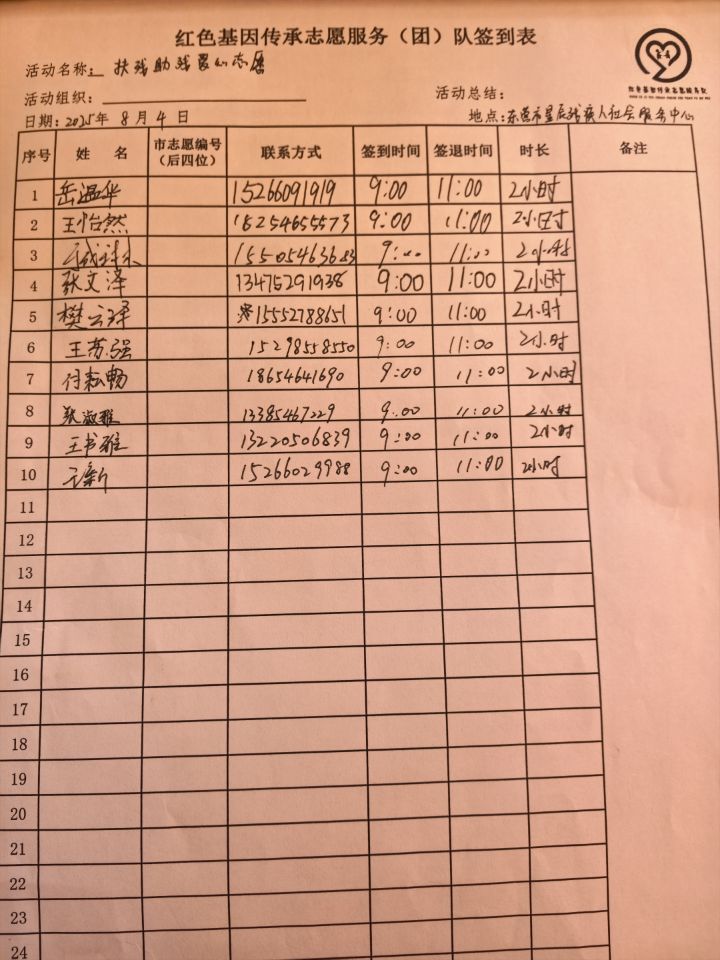 红色基因传承志愿服务（团）队签到表
活动名称：扶残助残爱心志愿
活动组织：
活动总结：
日期：2025年 8月 4日
地点：东营市星辰残疾人社会服务中心
序号 姓 名 市志愿编号（后四位） 联系方式 签到时间 签退时间 时长 备注
1 岳温华 15266091919 9:00 11:00 2小时
2 王怡然 18254655573 9:00 11:00 2小时
3 15505463683 9:00 11:00 2小时
4 张文泽 13475291938 9:00 11:00 2小时
5 樊云泽 15552788651 9:00 11:00 2小时
6 王苏强 15298558550 9:00 11:00 2小时
7 付耘畅 18654641690 9:00 11:00 2小时
8 张淑雅 13385467229 9:00 11:00 2小时
9 王书雅 13220506839 9:00 11:00 2小时
10 王新 15266029988 9:00 11:00 2小时
11
12
13
14
15
16
17
18
19
20
21
22
23
24